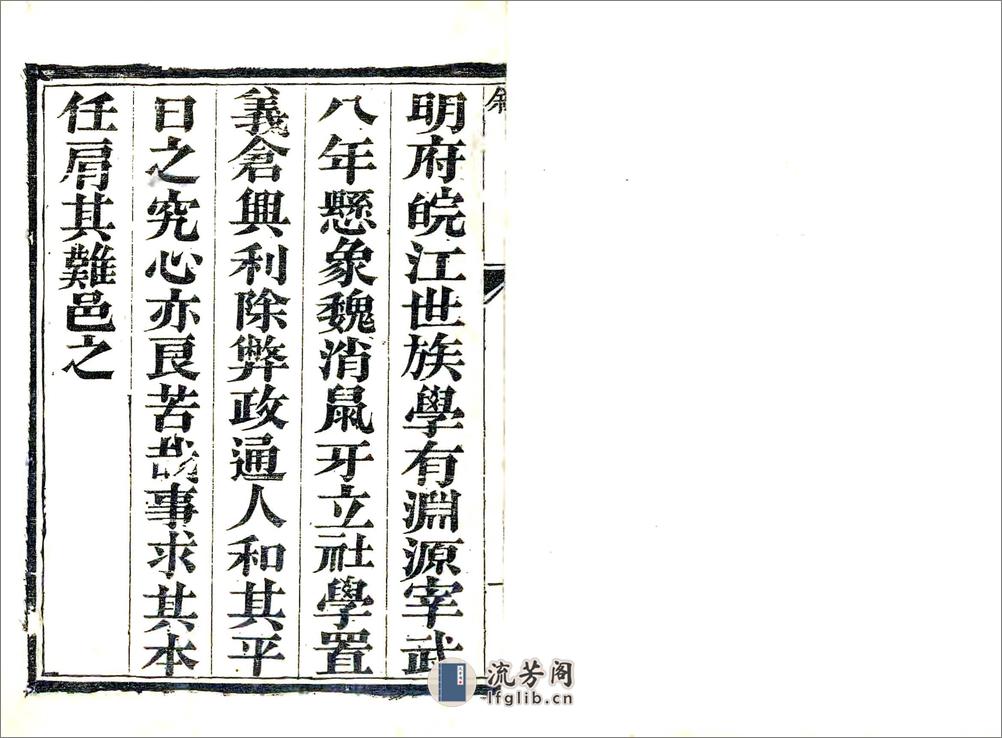 明府皖江世族學有淵源宰武
八年懸象魏消鼠牙立社學置
義倉興利除弊政通人和其平
日之究心亦良苦哉事求其本
任肩其難邑之
流芳阁
lfglib.cn